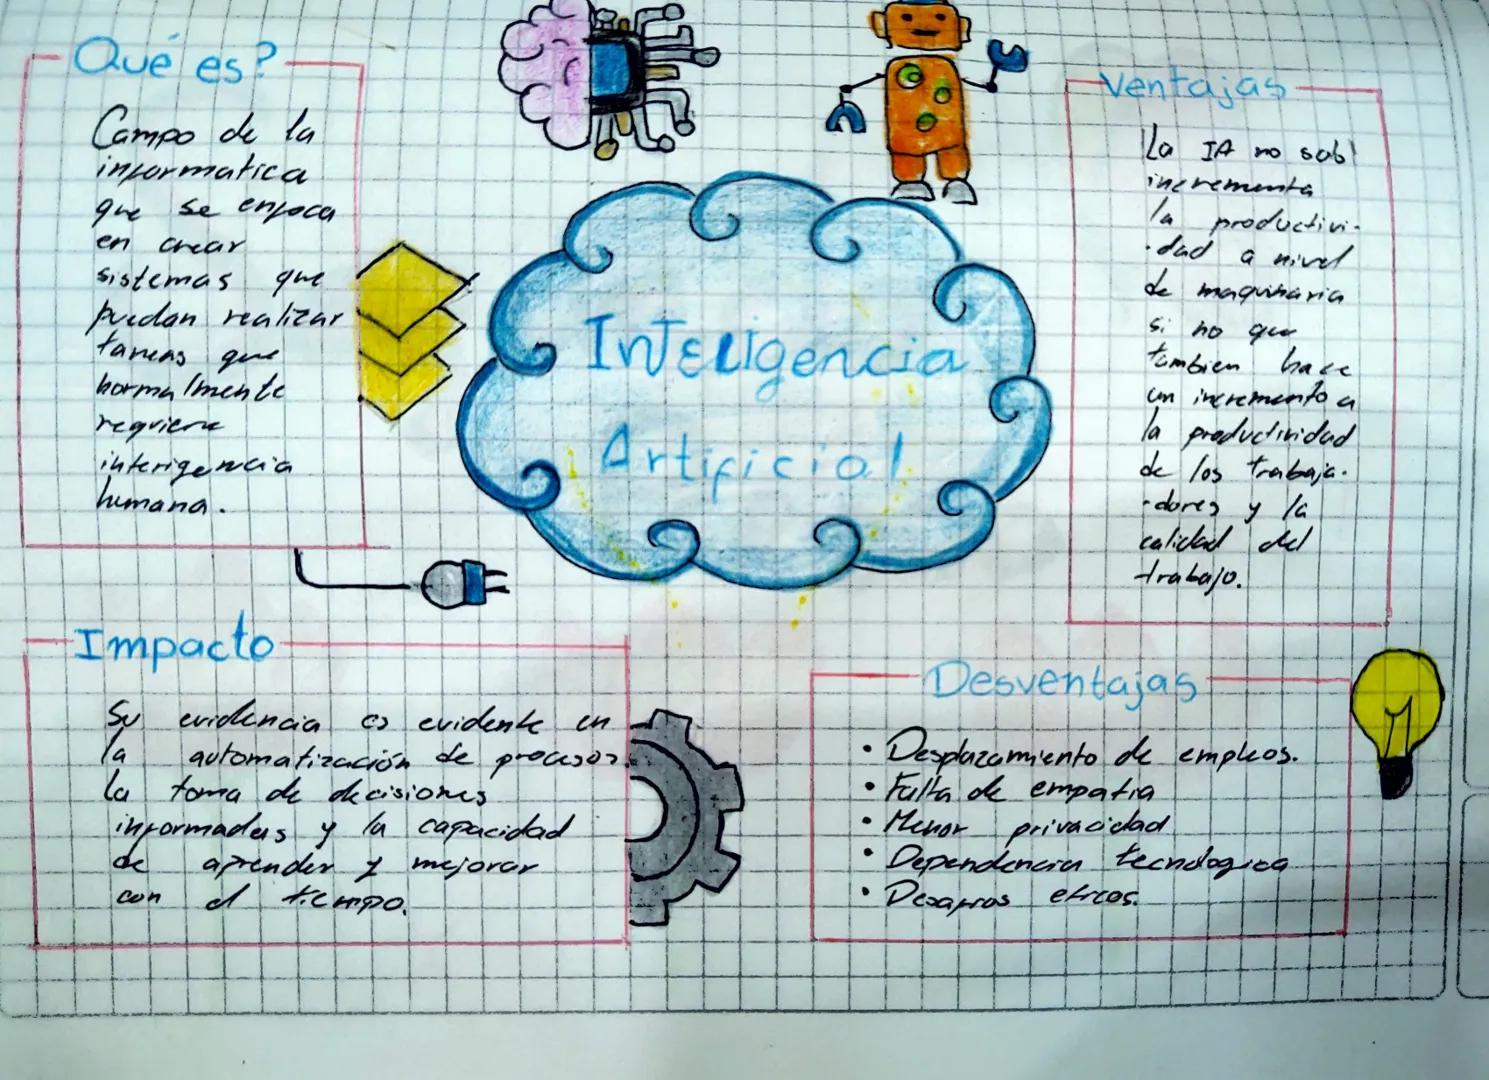 Qué es?
Campo de la
informatica
que se enfoca
en crear
sistemas que
puedan realizar
tareas que
normalmente
requiere
interigencia
humana.
Inteligencia
Artificial
Ventajas
La IA no solo
incrementa
la productivi-
-dad a nivel
de maquinaria
si no que
tambien hace
un incremento a
la productividad
de los trabaja-
-dores y la
calidad del
trabajo.
Impacto
Su evidencia es evidente en
la automatización de procesos.
la toma de decisiones
informadas y la capacidad
de aprender y mejorar
con el tiempo.
Desventajas
• Desplazamiento de empleos.
• Falta de empatia
• Menor privacidad
• Dependencia tecnologica
• Desafios eticos.